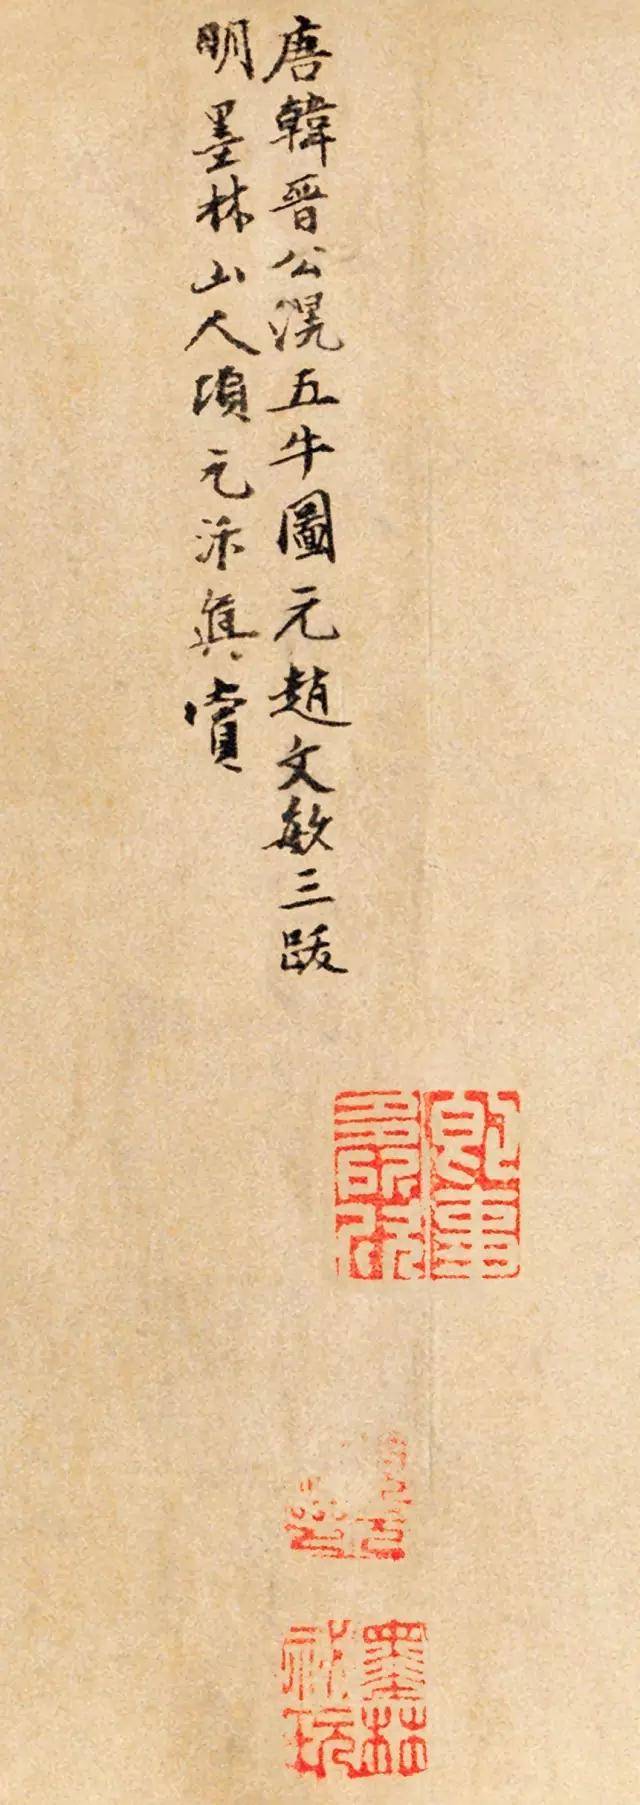 唐韓晋公滉五牛圖元趙文敏三跋
明墨林山人項元汴真賞
墨林
祕玩